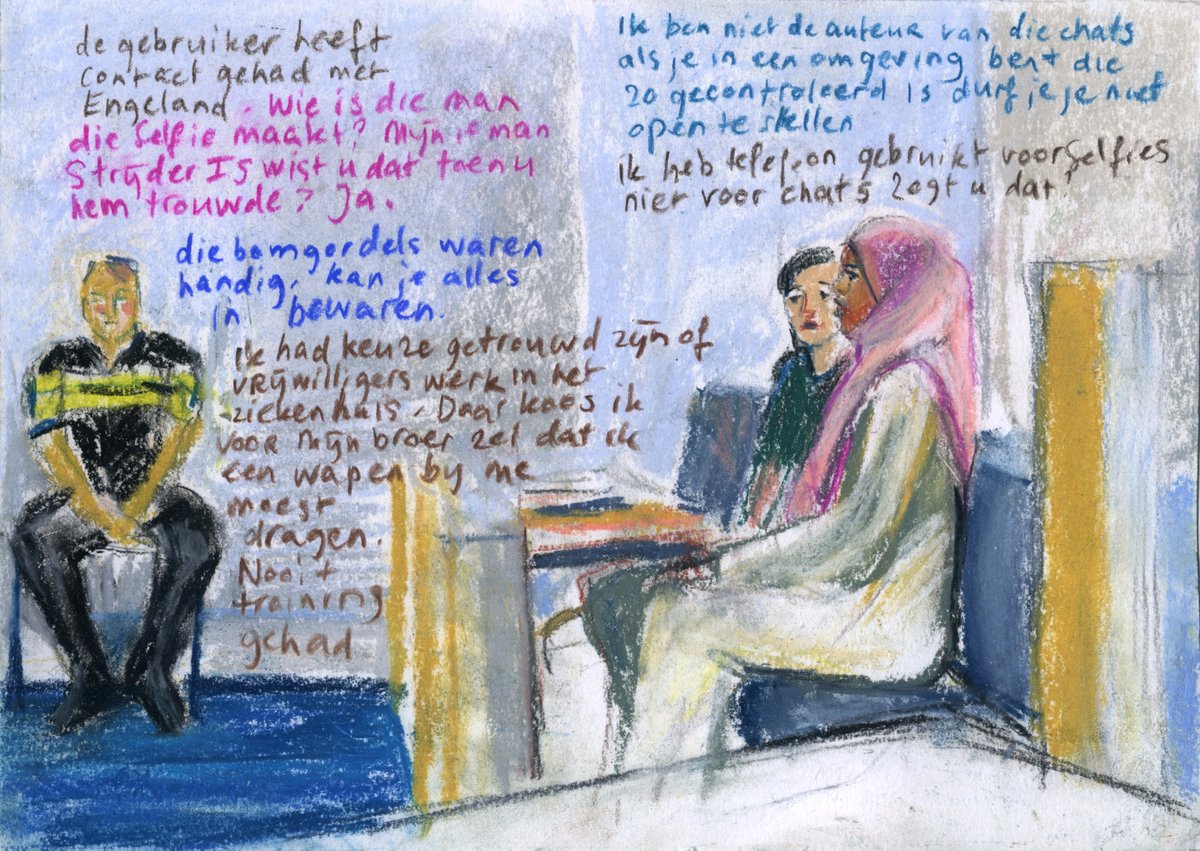 de gebruiker heeft
contact gehad met
Engeland. Wie is die man
die selfie maakt? Mijn ie man
Strijder IS wist u dat toen u
hem trouwde? Ja.
die bomgordels waren
handig, kan je alles
in bewaren.
Ik had keuze getrouwd zijn of
vrijwilligers werk in het
ziekenhuis. Daar koos ik
voor Mijn broer zei dat ik
een wapen by me
moest
dragen.
Nooit
training
gehad
Ik ben niet de auteur van die chats
als je in een omgeving bent die
zo gecontroleerd is durf je je niet
open te stellen
ik heb telefoon gebruikt voor selfies
niet voor chats zegt u dat?